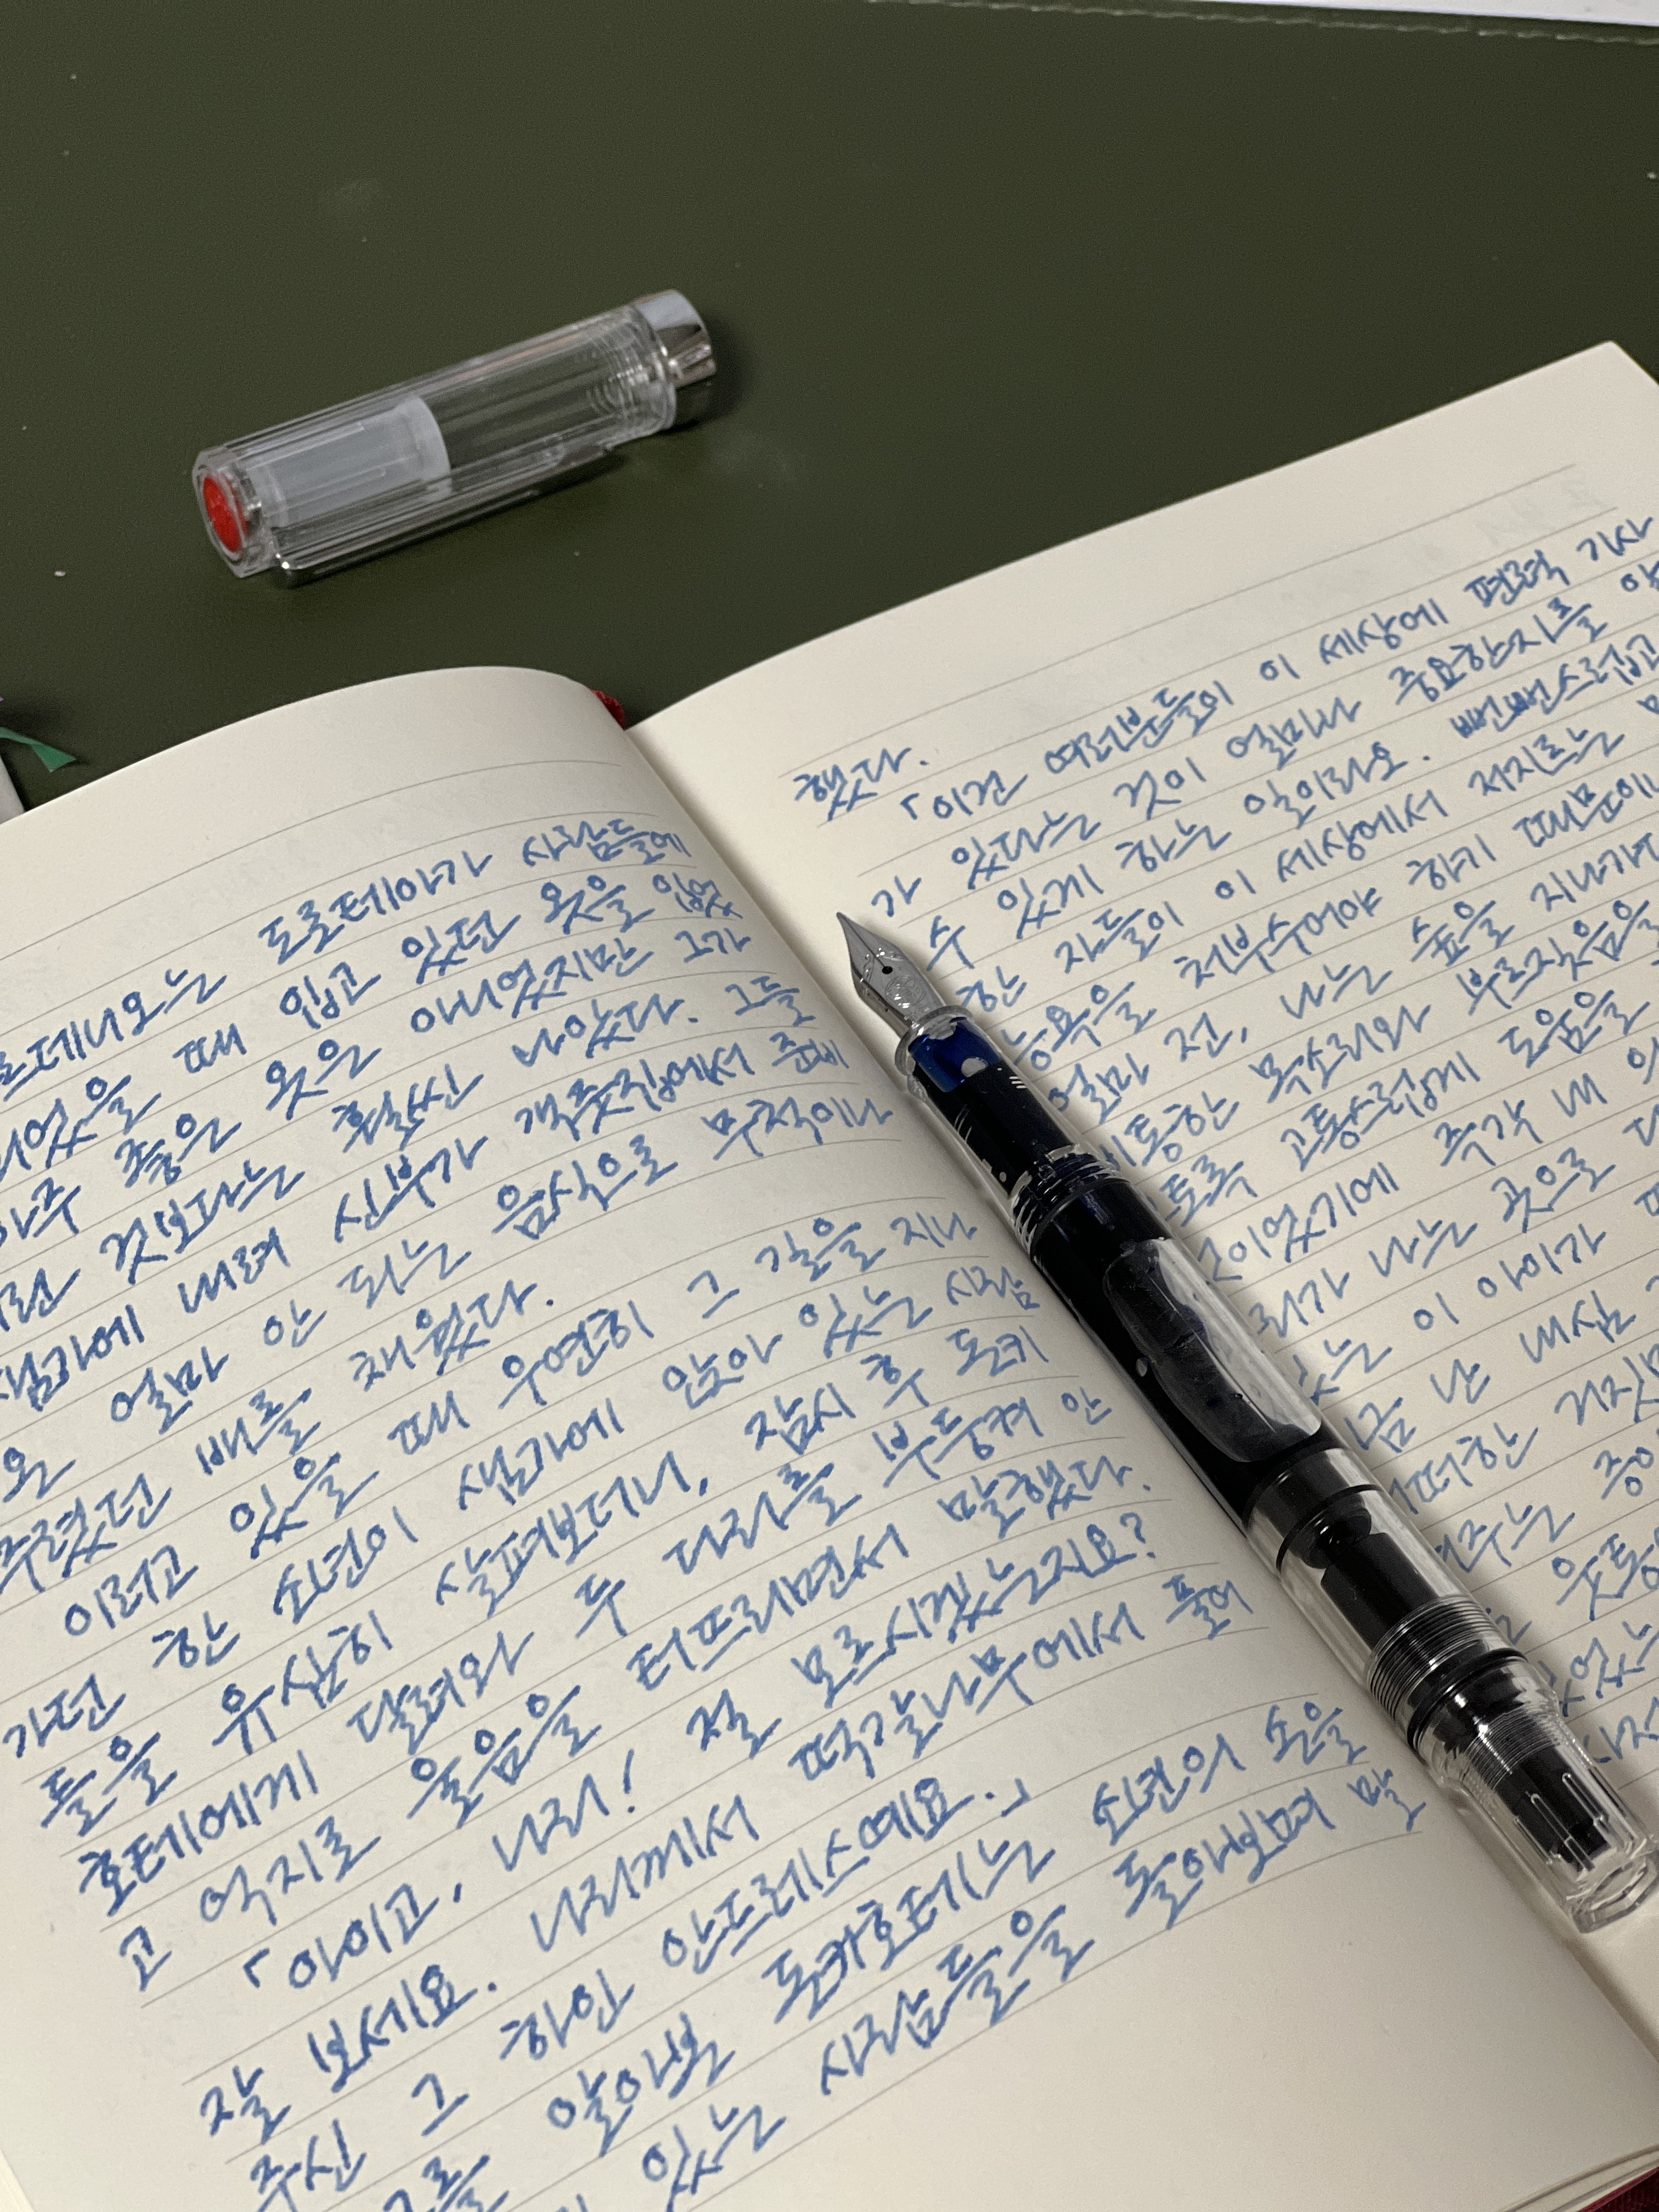 르데니오는 도로테아가 사람들에
되었을 때 입고 있던 옷을 입었
아주 좋은 옷은 아니었지만 그가
것보다는 훨씬 나았다. 그들
샘가에 내려 신부가 객줏집에서 준비
온 얼마 안 되는 음식으로 무척이나
주렸던 배를 채웠다.
이러고 있을 때 우연히 그 길을 지나
가던 한 소년이 샘가에 앉아 있는 사람
들을 유심히 살펴보더니, 잠시 후 돈키
호테에게 달려와 두 다리를 부둥켜 안
고 억지로 울음을 터뜨리면서 말했다.
「아이고, 나리! 절 모르시겠는지요?
잘 보세요. 나리께서 떡갈나무에서 풀어
주신 그 하인 안드레스예요.」
그를 알아본 돈키호테는 소년의 손을
있는 사람들을 돌아보며 말
했다.
「이건 여러분들이 이 세상에 편력 기사
가 있다는 것이 얼마나 중요한지를 알
수 있게 하는 일이라오. 뻔뻔스럽고
한 자들이 이 세상에서 저지르는
모욕을 쳐부수어야 하기 때문에
얼마 전, 나는 숲을 지나가다
비통한 목소리와 부르짖음을
토록 고통스럽게 도움을
것이었기에 즉각 내
리가 나는 곳으로
있는 이 아이가
금 난 내심